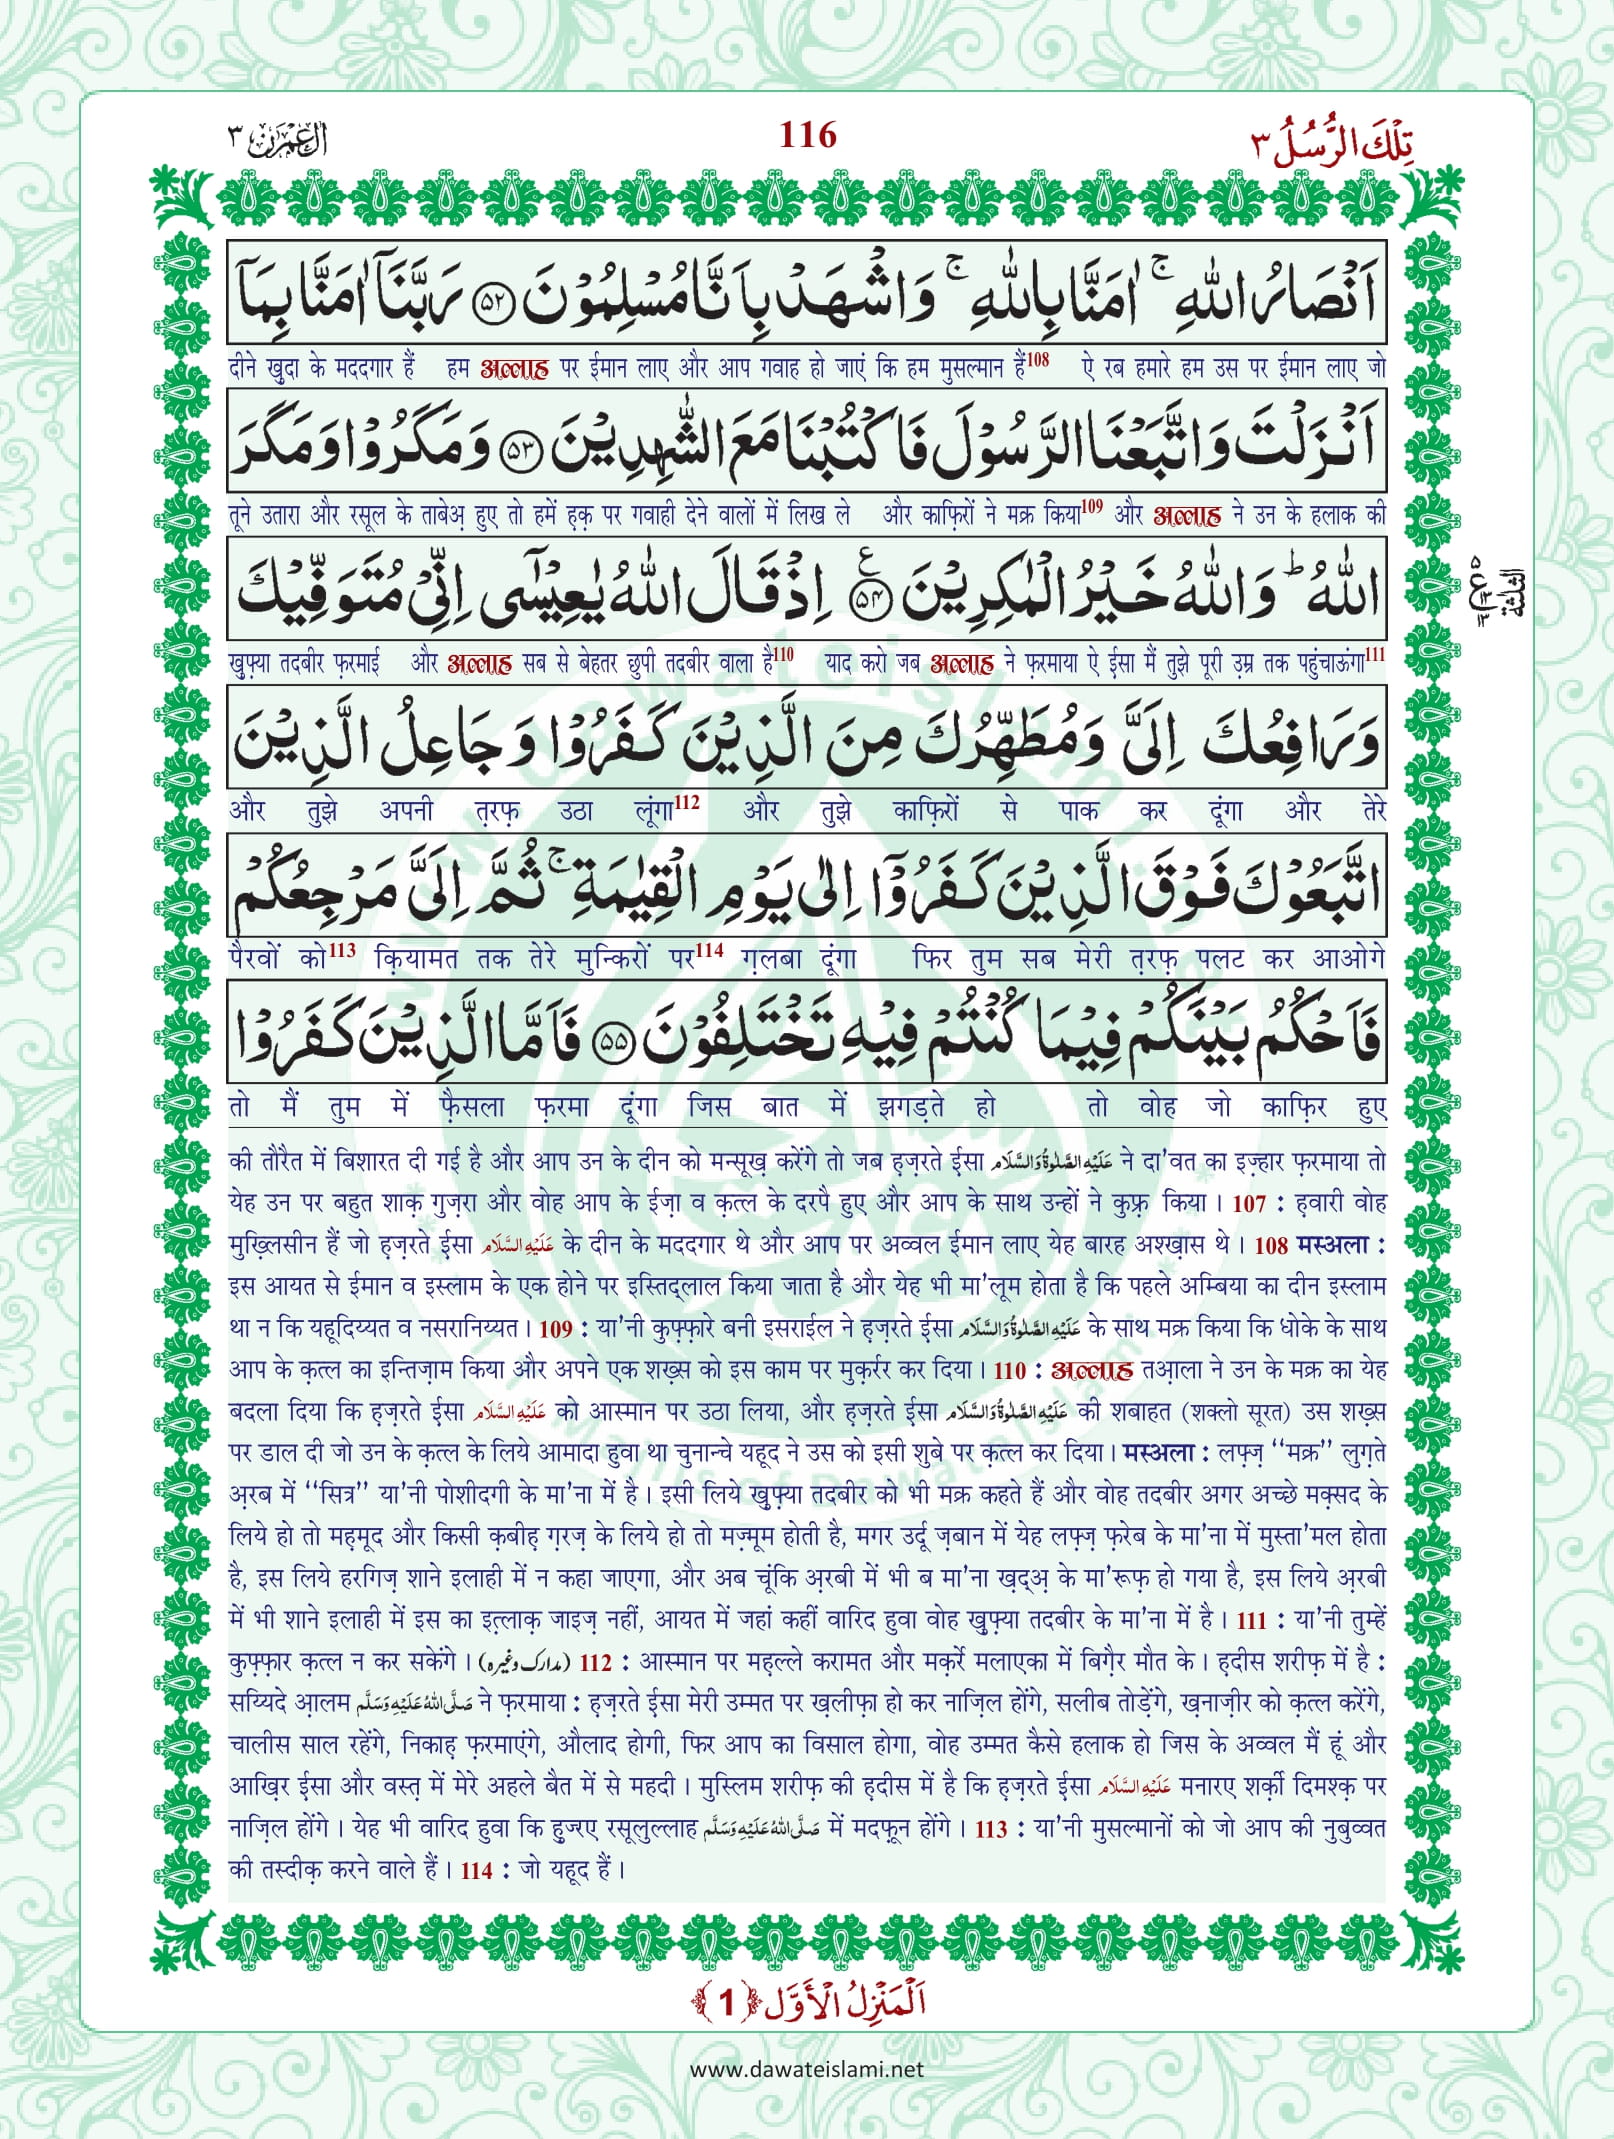 اٰلِ عِمْرٰن ٣
116
تِلْكَ الرُّسُلُ ٣
اَنْصَارُ اللّٰهِ ۚ اٰمَنَّا بِاللّٰهِ ۚ وَ اشْهَدْ بِاَنَّا مُسْلِمُوْنَ ﴿۵۲﴾ رَبَّنَاۤ اٰمَنَّا بِمَاۤ
दीने खुदा के मददगार हैं हम अल्लाह पर ईमान लाए और आप गवाह हो जाएं कि हम मुसल्मान हैं108 ऐ रब हमारे हम उस पर ईमान लाए जो
اَنْزَلْتَ وَ اتَّبَعْنَا الرَّسُوْلَ فَاكْتُبْنَا مَعَ الشّٰهِدِيْنَ ﴿۵۳﴾ وَ مَكَرُوْا وَ مَكَرَ
तूने उतारा और रसूल के ताबेअ़ हुए तो हमें ह़क़ पर गवाही देने वालों में लिख ले और काफ़िरों ने मक्र किया109 और अल्लाह ने उन के हलाक की
اللّٰهُ ؕ وَ اللّٰهُ خَيْرُ الْمٰكِرِيْنَ ﴿۵۴﴾ اِذْ قَالَ اللّٰهُ يٰعِيْسٰۤى اِنِّيْ مُتَوَفِّيْكَ
खुफ़्या तदबीर फ़रमाई और अल्लाह सब से बेहतर छुपी तदबीर वाला है110 याद करो जब अल्लाह ने फ़रमाया ऐ ईसा मैं तुझे पूरी उम्र तक पहुंचाऊंगा111
وَ رَافِعُكَ اِلَيَّ وَ مُطَهِّرُكَ مِنَ الَّذِيْنَ كَفَرُوْا وَ جَاعِلُ الَّذِيْنَ
और तुझे अपनी त़रफ़ उठा लूंगा112 और तुझे काफ़िरों से पाक कर दूंगा और तेरे
اتَّبَعُوْكَ فَوْقَ الَّذِيْنَ كَفَرُوْۤا اِلٰى يَوْمِ الْقِيٰمَةِ ۚ ثُمَّ اِلَيَّ مَرْجِعُكُمْ
पैरवों को113 क़ियामत तक तेरे मुन्किरों पर114 ग़लबा दूंगा फिर तुम सब मेरी त़रफ़ पलट कर आओगे
فَاَحْكُمُ بَيْنَكُمْ فِيْمَا كُنْتُمْ فِيْهِ تَخْتَلِفُوْنَ ﴿۵۵﴾ فَاَمَّا الَّذِيْنَ كَفَرُوْا
तो मैं तुम में फ़ैसला फ़रमा दूंगा जिस बात में झगड़ते हो तो वोह जो काफ़िर हुए
की तौरैत में बिशारत दी गई है और आप उन के दीन को मन्सूख़ करेंगे तो जब ह़ज़रते ईसा عَلَيْهِ الصَّلٰوةُ وَالسَّلَام ने दा'वत का इज़्हार फ़रमाया तो
येह उन पर बहुत शाक़ गुज़रा और वोह आप के ईज़ा व क़त्ल के दरपै हुए और आप के साथ उन्हों ने कुफ़्र किया। 107 : ह़वारी वोह
मुख़्लिसीन हैं जो ह़ज़रते ईसा عَلَيْهِ السَّلَام के दीन के मददगार थे और आप पर अव्वल ईमान लाए येह बारह अश्ख़ास थे। 108 मस्अला :
इस आयत से ईमान व इस्लाम के एक होने पर इस्तिद्लाल किया जाता है और येह भी मा'लूम होता है कि पहले अम्बिया का दीन इस्लाम
था न कि यहूदिय्यत व नसरानिय्यत। 109 : या'नी कुफ़्फ़ारे बनी इसराईल ने ह़ज़रते ईसा عَلَيْهِ الصَّلٰوةُ وَالسَّلَام के साथ मक्र किया कि धोके के साथ
आप के क़त्ल का इन्तिज़ाम किया और अपने एक शख़्स को इस काम पर मुक़र्रर कर दिया। 110 : अल्लाह तआ़ला ने उन के मक्र का येह
बदला दिया कि ह़ज़रते ईसा عَلَيْهِ السَّلَام को आस्मान पर उठा लिया, और ह़ज़रते ईसा عَلَيْهِ الصَّلٰوةُ وَالسَّلَام की शबाहत (शक्लो सूरत) उस शख़्स
पर डाल दी जो उन के क़त्ल के लिये आमादा हुवा था चुनान्चे यहूद ने उस को इसी शुबे पर क़त्ल कर दिया। मस्अला : लफ़्ज़ ‘‘मक्र’’ लुग़ते
अ़रब में ‘‘सित्र’’ या'नी पोशीदगी के मा'ना में है। इसी लिये खुफ़्या तदबीर को भी मक्र कहते हैं और वोह तदबीर अगर अच्छे मक़्सद के
लिये हो तो मह़मूद और किसी क़बीह़ ग़रज़ के लिये हो तो मज़्मूम होती है, मगर उर्दू ज़बान में येह लफ़्ज़ फ़रेब के मा'ना में मुस्ता'मल होता
है, इस लिये हरगिज़ शाने इलाही में न कहा जाएगा, और अब चूंकि अ़रबी में भी ब मा'ना ख़द्अ़ के मा'रूफ़ हो गया है, इस लिये अ़रबी
में भी शाने इलाही में इस का इत़्लाक़ जाइज़ नहीं, आयत में जहां कहीं वारिद हुवा वोह खुफ़्या तदबीर के मा'ना में है। 111 : या'नी तुम्हें
कुफ़्फ़ार क़त्ल न कर सकेंगे। (مدارک وغیرہ) 112 : आस्मान पर मह़ल्ले करामत और मक़र्रे मलाएका में बिग़ैर मौत के। ह़दीस शरीफ़ में है :
सय्यिदे आ़लम صَلَّى اللهُ عَلَيْهِ وَسَلَّم ने फ़रमाया : ह़ज़रते ईसा मेरी उम्मत पर ख़लीफ़ा हो कर नाज़िल होंगे, सलीब तोड़ेंगे, ख़नाज़ीर को क़त्ल करेंगे,
चालीस साल रहेंगे, निकाह़ फ़रमाएंगे, औलाद होगी, फिर आप का विसाल होगा, वोह उम्मत कैसे हलाक हो जिस के अव्वल मैं हूं और
आख़िर ईसा और वस्त़ में मेरे अहले बैत में से महदी। मुस्लिम शरीफ़ की ह़दीस में है कि ह़ज़रते ईसा عَلَيْهِ السَّلَام मनारए शर्क़ी दिमश्क़ पर
नाज़िल होंगे। येह भी वारिद हुवा कि ह़ुज्रए रसूलुल्लाह صَلَّى اللهُ عَلَيْهِ وَسَلَّم में मदफ़ून होंगे। 113 : या'नी मुसल्मानों को जो आप की नुबुव्वत
की तस्दीक़ करने वाले हैं। 114 : जो यहूद हैं।
اَلْمَنْزِلُ الْاَوَّل ﴿1﴾
www.dawateislami.net